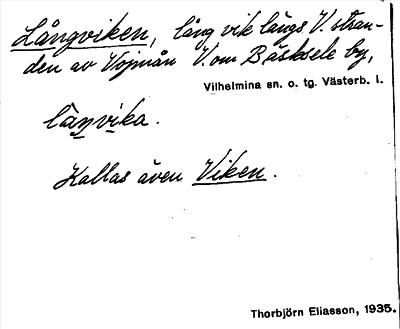 Långviken, lång vik längs V. stran-
den av Vojmån V. om Bäcksele by,
Vilhelmina sn. o. tg. Västerb. l.
låŋvika.
Kallas även Viken.
Thorbjörn Eliasson, 1935.